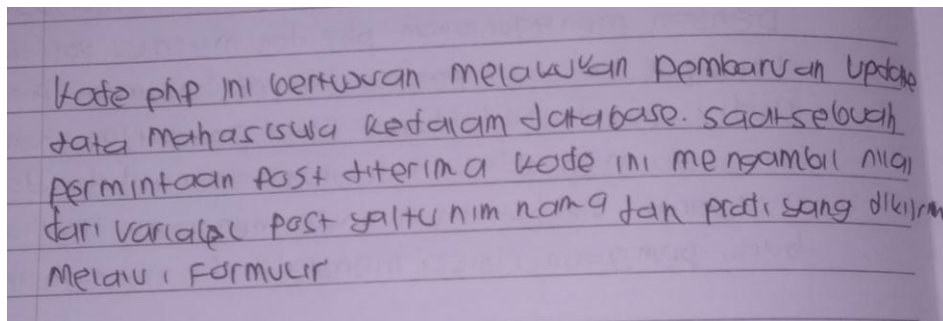 Kode php ini bertujuan melakukan pembaruan update
data mahasiswa kedalam database. saat sebuah
permintaan post diterima kode ini mengambil nilai
dari variabel post yaitu nim nama dan prodi yang dikirim
melalui formulir